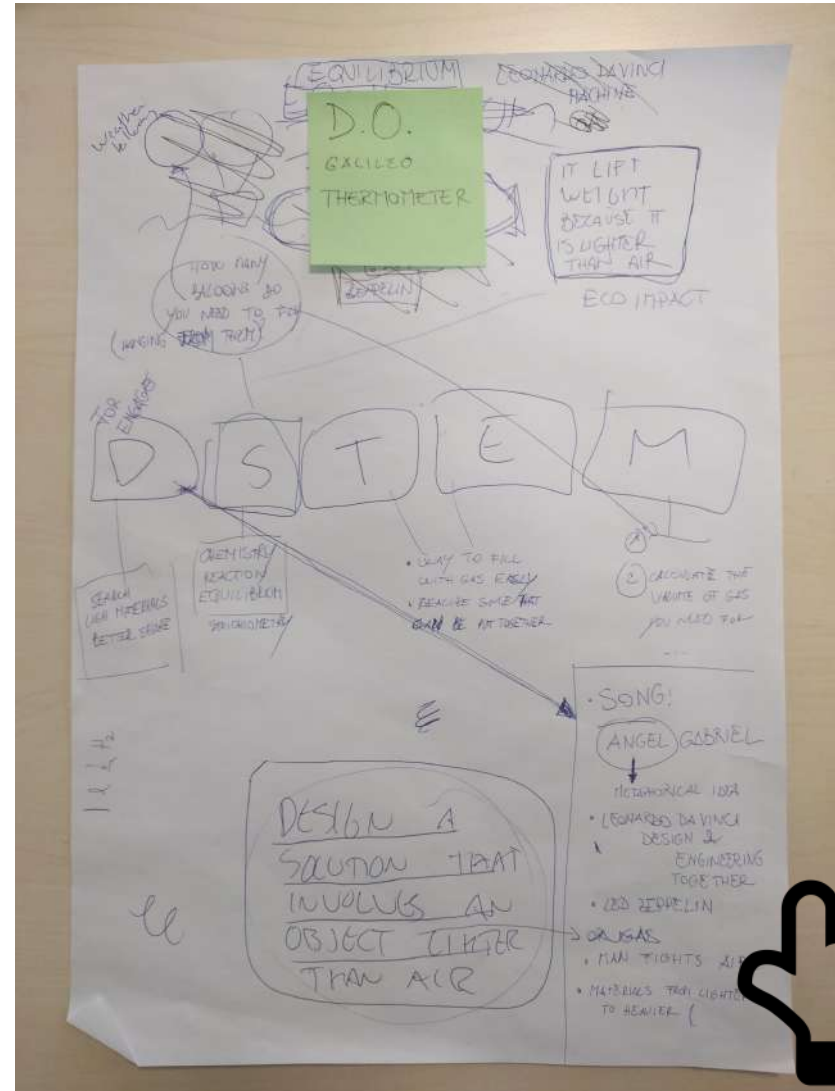 EQUILIBRIUM
LEONARDO DAVINCI
MACHINE
Weather
D.O.
GALILEO
THERMOMETER
IT LIFT
WEIGHT
BECAUSE IT
IS LIGHTER
THAN AIR
ZEPPELIN
ECO IMPACT
HOW MANY
BALOONS DO
YOU NEED TO FLY
(HANGING FROM THEM)
FOR
ENGAGE
D
S
T
E
M
SEARCH
LIGH MATERIALS
BETTER SHAPE
CHEMISTRY
REACTION
EQUILIBRIUM
STOICHIOMETRY
• WAY TO FILL
WITH GAS EASILY
• REALIZE SOME THAT
CAN BE PUT TOGETHER
2 CALCULATE THE
VOLUME OF GAS
YOU NEED FOR
...
• SONG:
ANGEL GABRIEL
METAPHORICAL IDEA
• LEONARDO DA VINCI
DESIGN &
ENGINEERING
TOGETHER
• LED ZEPPELIN
• MAN FIGHTS AIR
• MATERIALS FROM LIGHTER
TO HEAVIER (
DESIGN A
SOLUTION THAT
INVOLVES AN
OBJECT LIHTER
THAN AIR